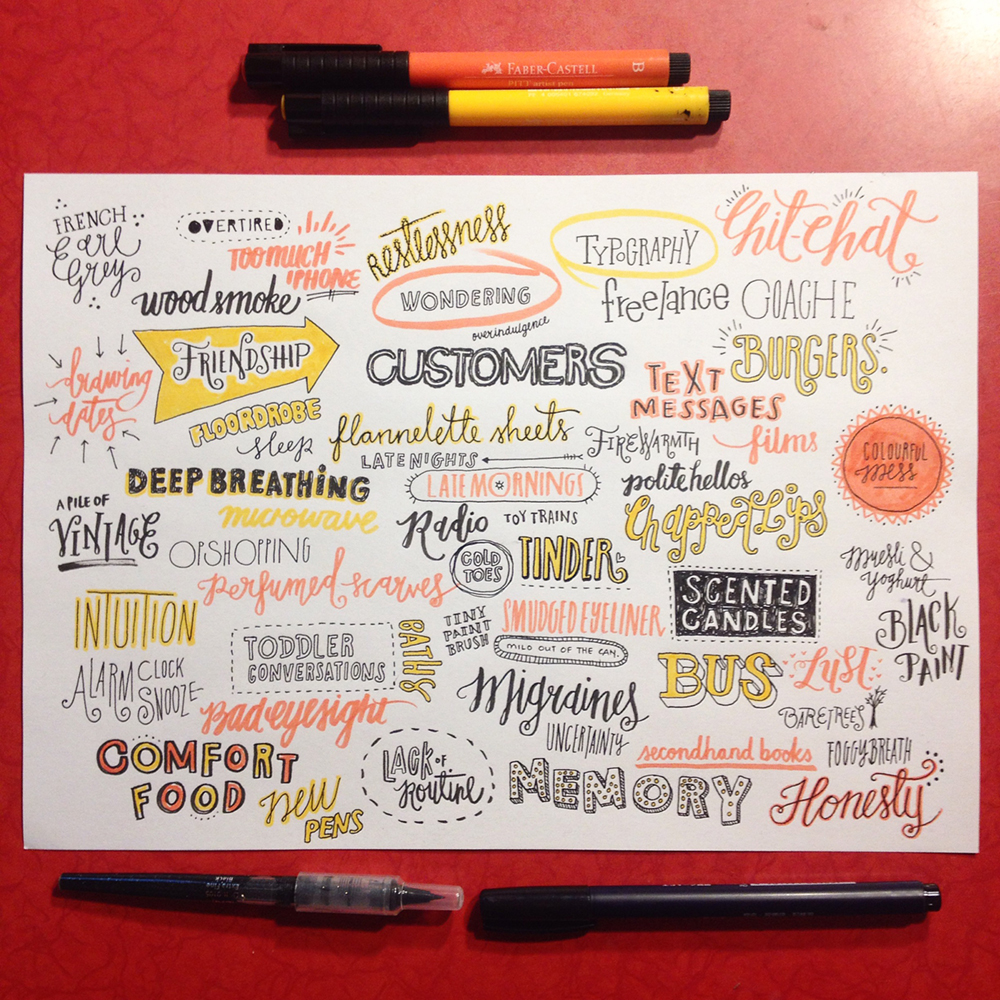 FABER-CASTELL B
PITT artist pen
FRENCH
Earl
Grey
OVERTIRED
TOO MUCH
iPHONE
RESTLESSNESS
TYPOGRAPHY
Chit-Chat
woodsmoke
WONDERING
freelance
GOACHE
overindulgence
FRIENDSHIP
CUSTOMERS
BURGERS.
drawing
dates
TEXT
MESSAGES
FLOORDROBE
sleep
flannelette sheets
FIREWARMTH
films
COLOURFUL
mess
LATE NIGHTS
DEEP BREATHING
LATE MORNINGS
polite hellos
A PILE OF
VINTAGE
microwave
Radio
TOY TRAINS
Chapped Lips
OPSHOPPING
COLD
TOES
TINDER
Muesli &
Yoghurt
perfumed scarves
SCENTED
CANDLES
INTUITION
TINY
PAINT
BRUSH
SMUDGED EYELINER
BLACK
PAINT
TODDLER
CONVERSATIONS
BATHS
MILO OUT OF THE CAN
ALARM CLOCK
SNOOZE
Migraines
BUS
Lust
Bad eyesight
BARETREES
UNCERTAINTY
COMFORT
FOOD
LACK OF
Routine
secondhand books
FOGGY BREATH
new
PENS
MEMORY
Honesty
Extra Fine
Black